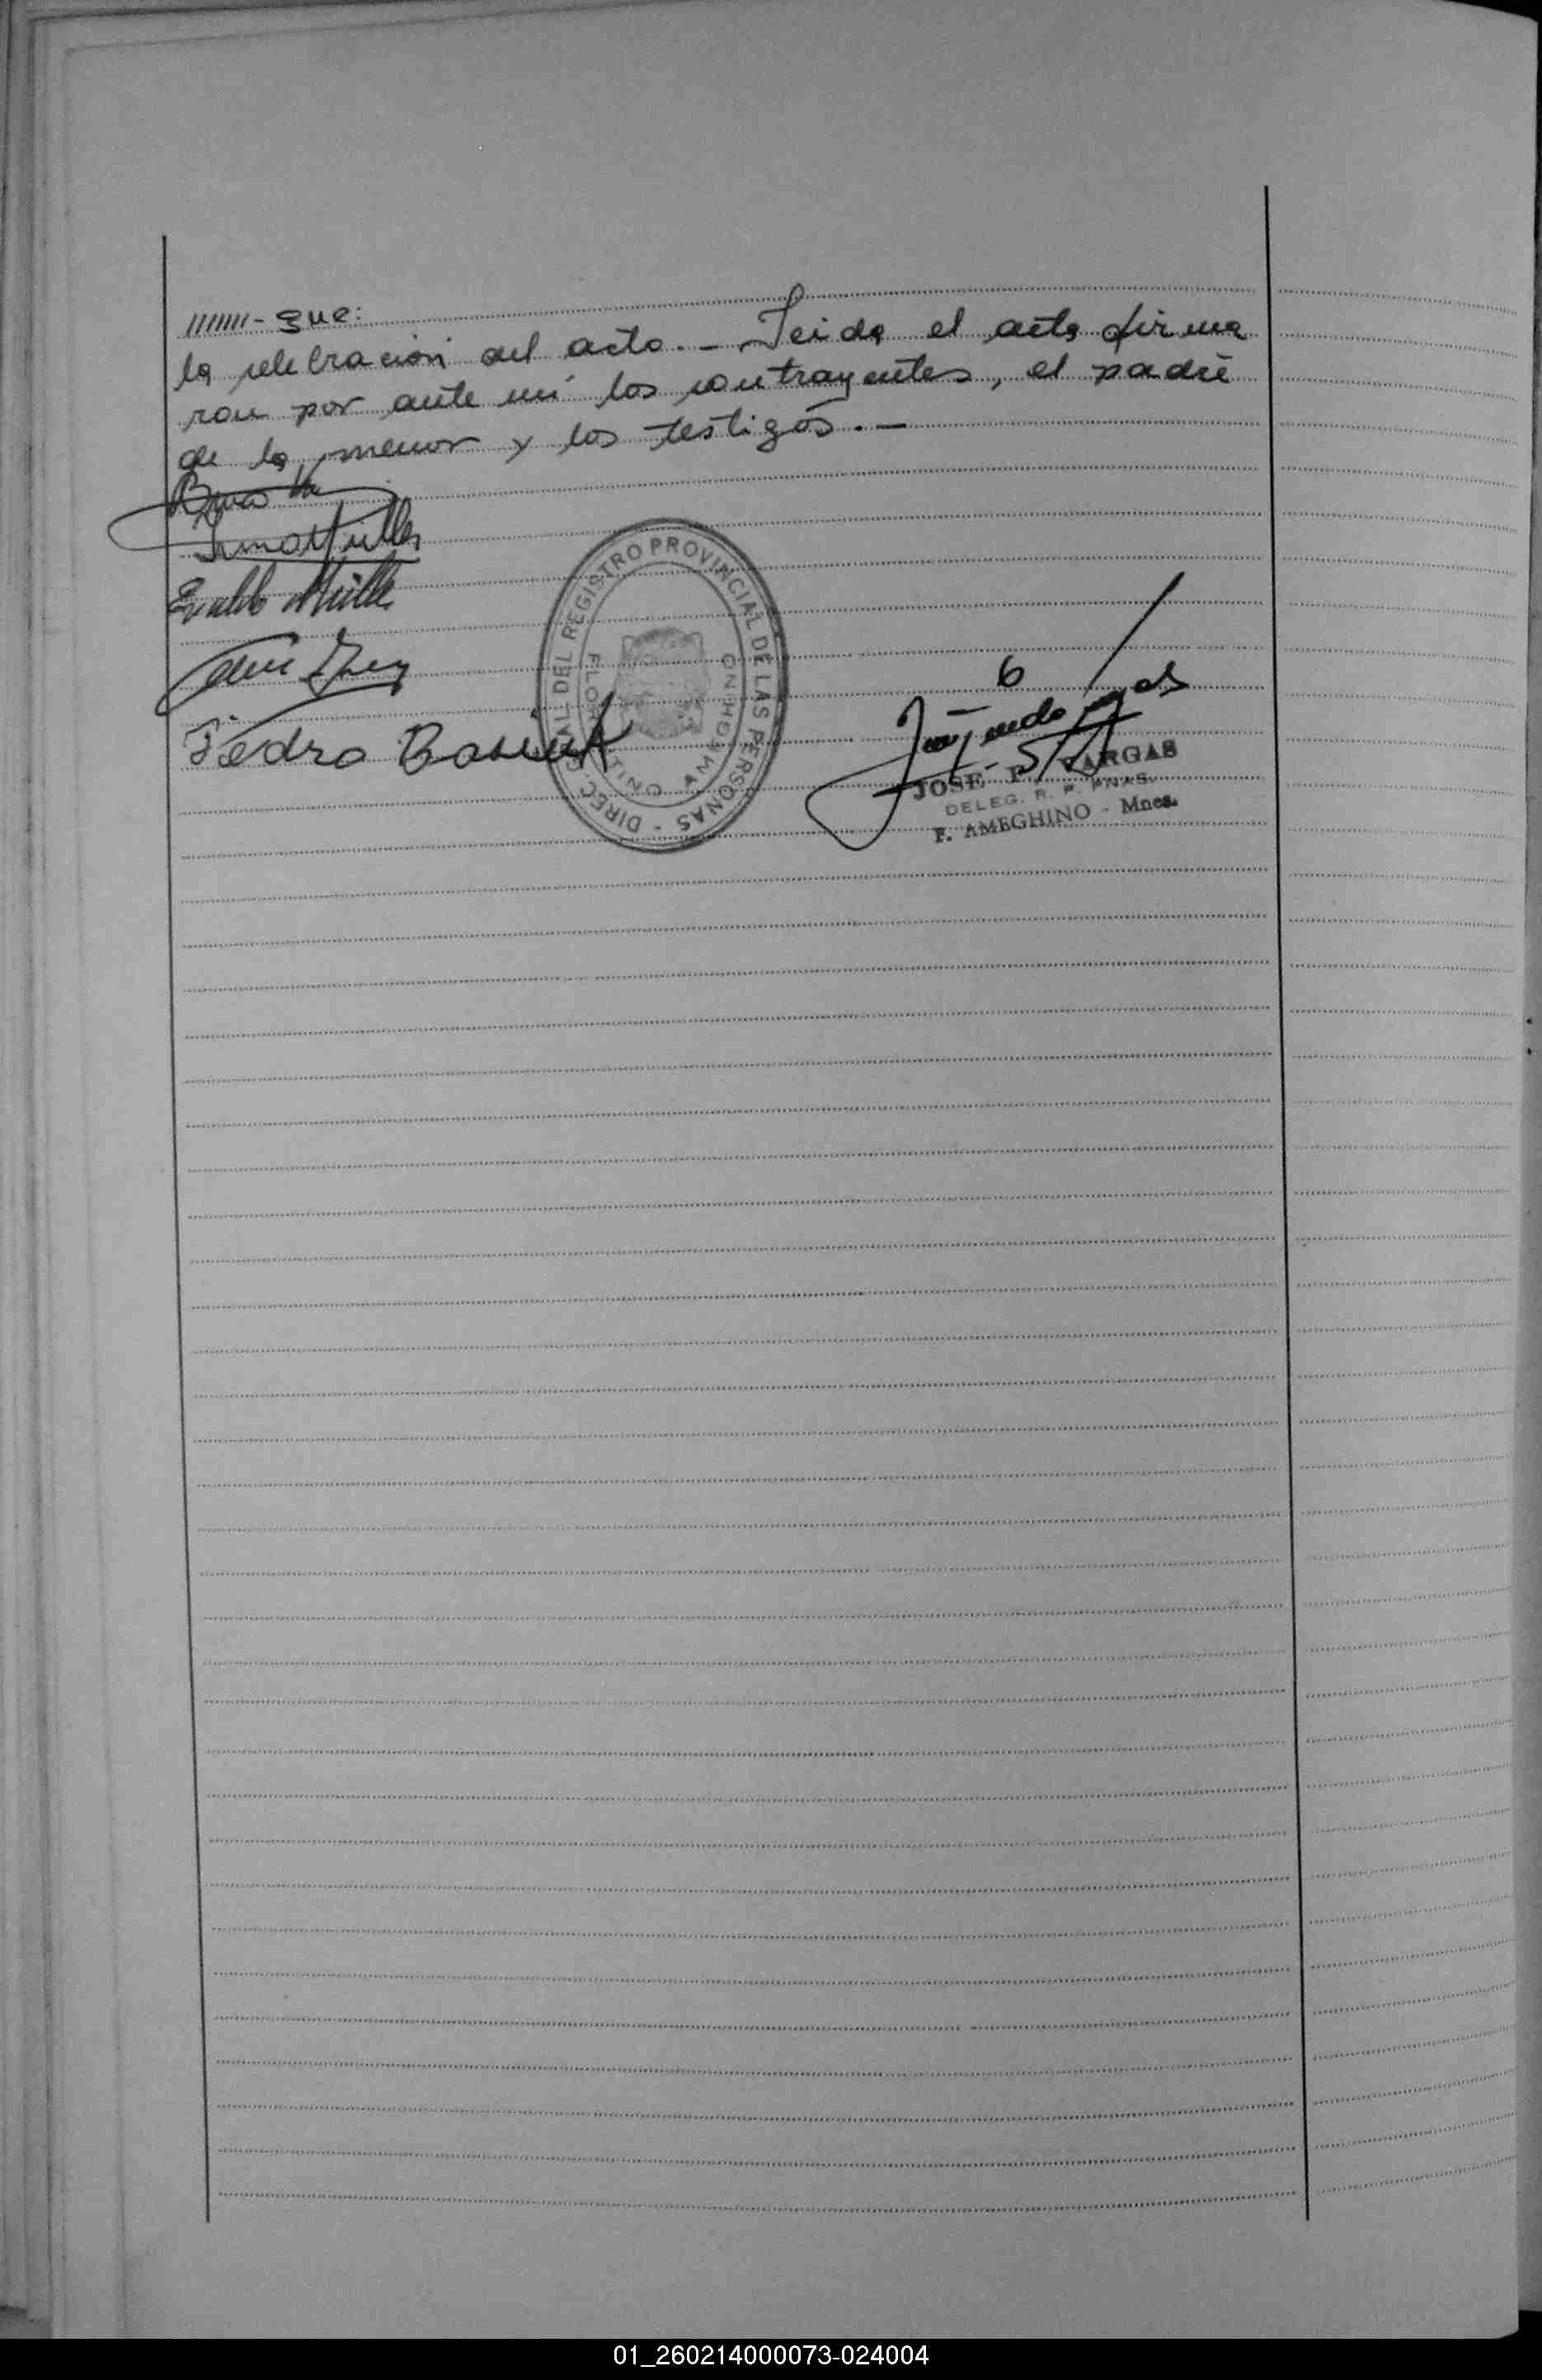 ///////- que:
la celebración del acto. - Leida el acta firma
ron por ante mi los contrayentes, el padre
de la menor y los testigos. -
Irma Müller
Evaldo Müller
Pedro
DIREC. GRAL. DEL REGISTRO PROVINCIAL DE LAS PERSONAS -
FLORENTINO AMEGHINO
6
JOSE F. VARGAS
DELEG. R. P. PNAS.
F. AMEGHINO - Mnes.
01_260214000073-024004